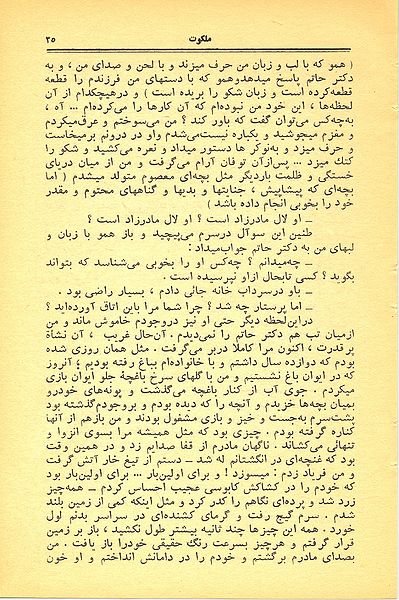 ملکوت
۳۵
( همو که با لب و زبان من حرف میزند و با لحن و صدای من ، و به
دکتر حاتم پاسخ میدهدوهمو که با دستهای من فرزندم را قطعه
قطعه‌کرده است و زبان شکو را بریده است ) و درهیچکدام از آن
لحظه‌ها ، این خود من نبوده‌ام که آن کارها را می‌کرده‌ام ... آه ،
به‌چه‌کس می‌توان گفت که باور کند ؟ من می‌سوختم و عرق‌میکردم
و مغزم میجوشید و یکباره نیست‌می‌شدم واو در درونم برمیخاست
و حرف میزد و به‌نوکر ها دستور میداد و نعره می‌کشید و شکو را
کتك میزد ... پس‌ازآن توفان آرام می‌گرفت و من از میان دریای
خستگی و ظلمت باردیگر مثل بچه‌ای معصوم متولد میشدم ( اما
بچه‌ای که پیشاپیش ، جنایتها و بدیها و گناههای محتوم و مقدر
خود را بخوبی انجام داده باشد )
ــ او لال مادرزاد است ؟ او لال مادرزاد است ؟
طنین این سوآل درسرم می‌پیچید و باز همو با زبان و
لبهای من به دکتر حاتم جواب‌میداد :
ــ چه‌میدانم ؟ چه‌کس او را بخوبی می‌شناسد که بتواند
بگوید ؟ کسی تابحال ازاو نپرسیده است .
ــ باو درسرداب خانه جائی دادم ، بسیار راضی بود .
ــ اما پرستار چه شد ؟ چرا شما مرا باین اتاق آورده‌اید ؟
دراین‌لحظه دیگر حتی او نیز دروجودم خاموش ماند و من
ازمیان تب هم دکتر حاتم را نمی‌دیدم . آن‌حال غریب ، آن نشأة
پرقدرت ، اکنون مرا کاملا دربر می‌گرفت . مثل همان روزی شده
بودم که دوازده سال داشتم و با خانواده‌ام بباغ رفته بودیم ؛ آنروز
که در ایوان باغ نشستیم و من با گلهای سرخ باغچهٔ جلو ایوان بازی
میکردم . جوی آب از کنار باغچه می‌گذشت و پونه‌های خودرو
بمیان بچه‌ها خزیدم و آنچه را که دیده بودم و بروجودم‌گذشته بود
پشت‌سرم به‌جست و خیز و بازی مشغول بودند و من بازهم از آنها
کناره گرفته بودم . چیزی بود که مثل همیشه مرا بسوی انزوا و
تنهائی می‌کشاند . ناگهان مادرم از قفا صدایم زد و در همین وقت
بود که غنچه‌ای در انگشتانم له شد ــ دستم از تیغ خار آتش گرفت
و من فریاد زدم : میسوزد ! و برای اولین‌بار ... برای اولین‌بار بود
که خودم را در کشاکش کابوسی عجیب احساس کردم ــ همه‌چیز
زرد شد و پرده‌ای نگاهم را کدر کرد و مثل اینکه کمی از زمین بلند
شدم . سرم گیج رفت و گرمای کشنده‌ای در سراسر بدنم لول
خورد . همه این چیزها چند ثانیه بیشتر طول نکشید ، باز بر زمین
قرار گرفتم و هرچیز بسرعت رنگ حقیقی خودرا باز یافت . من
بصدای مادرم برگشتم و خودم را در دامانش انداختم و او خون